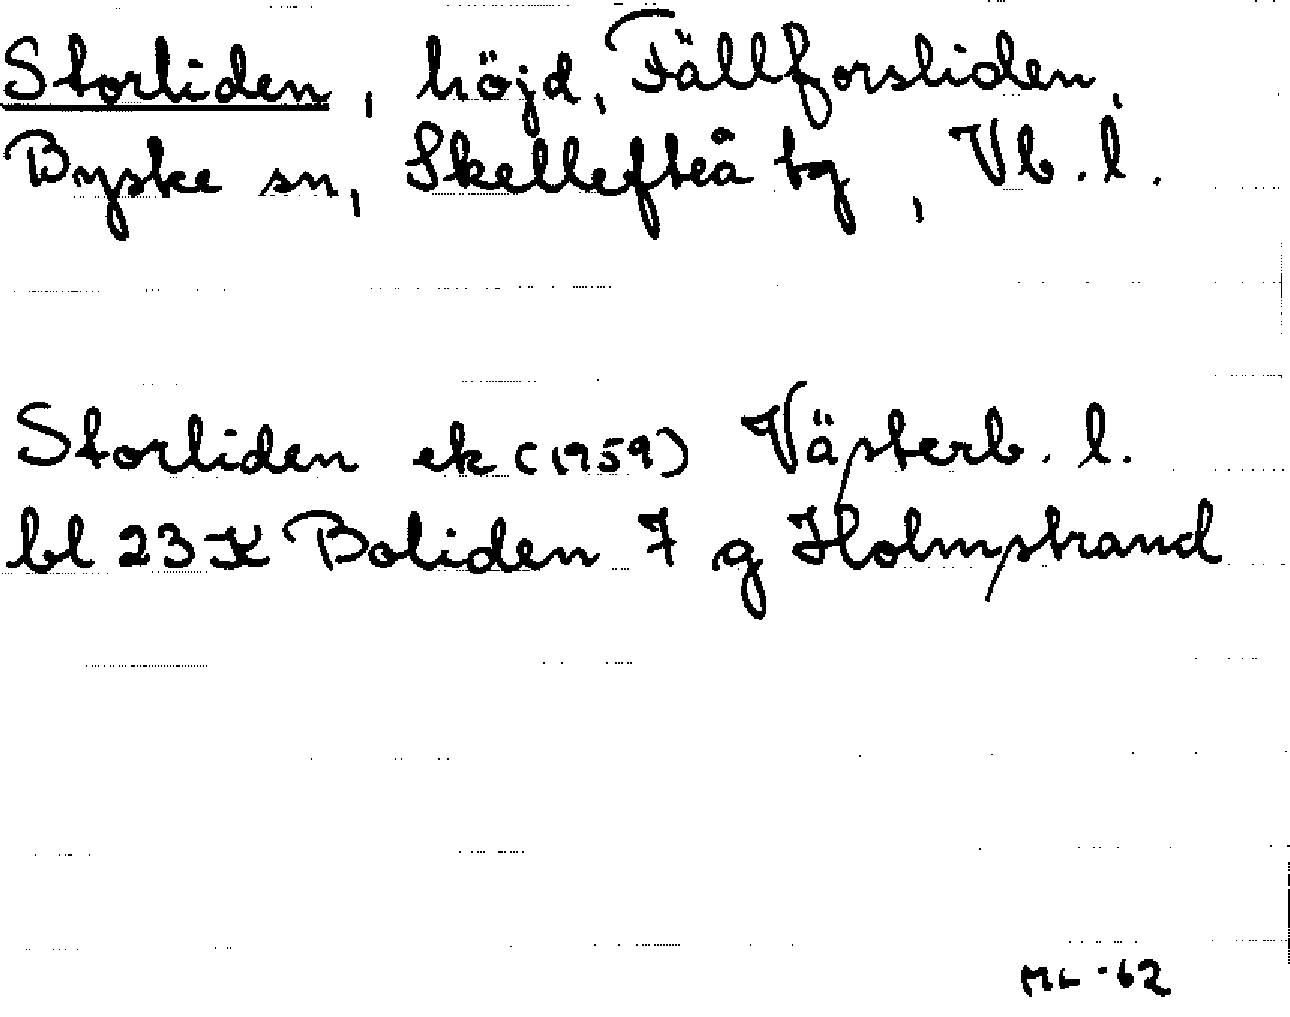 Storliden, höjd, Fällforsliden,
Byske sn, Skellefteå tg, Vb. l.
Storliden ek (1959) Västerb. l.
bl 23 K Boliden 7 g Holmstrand
ML -62